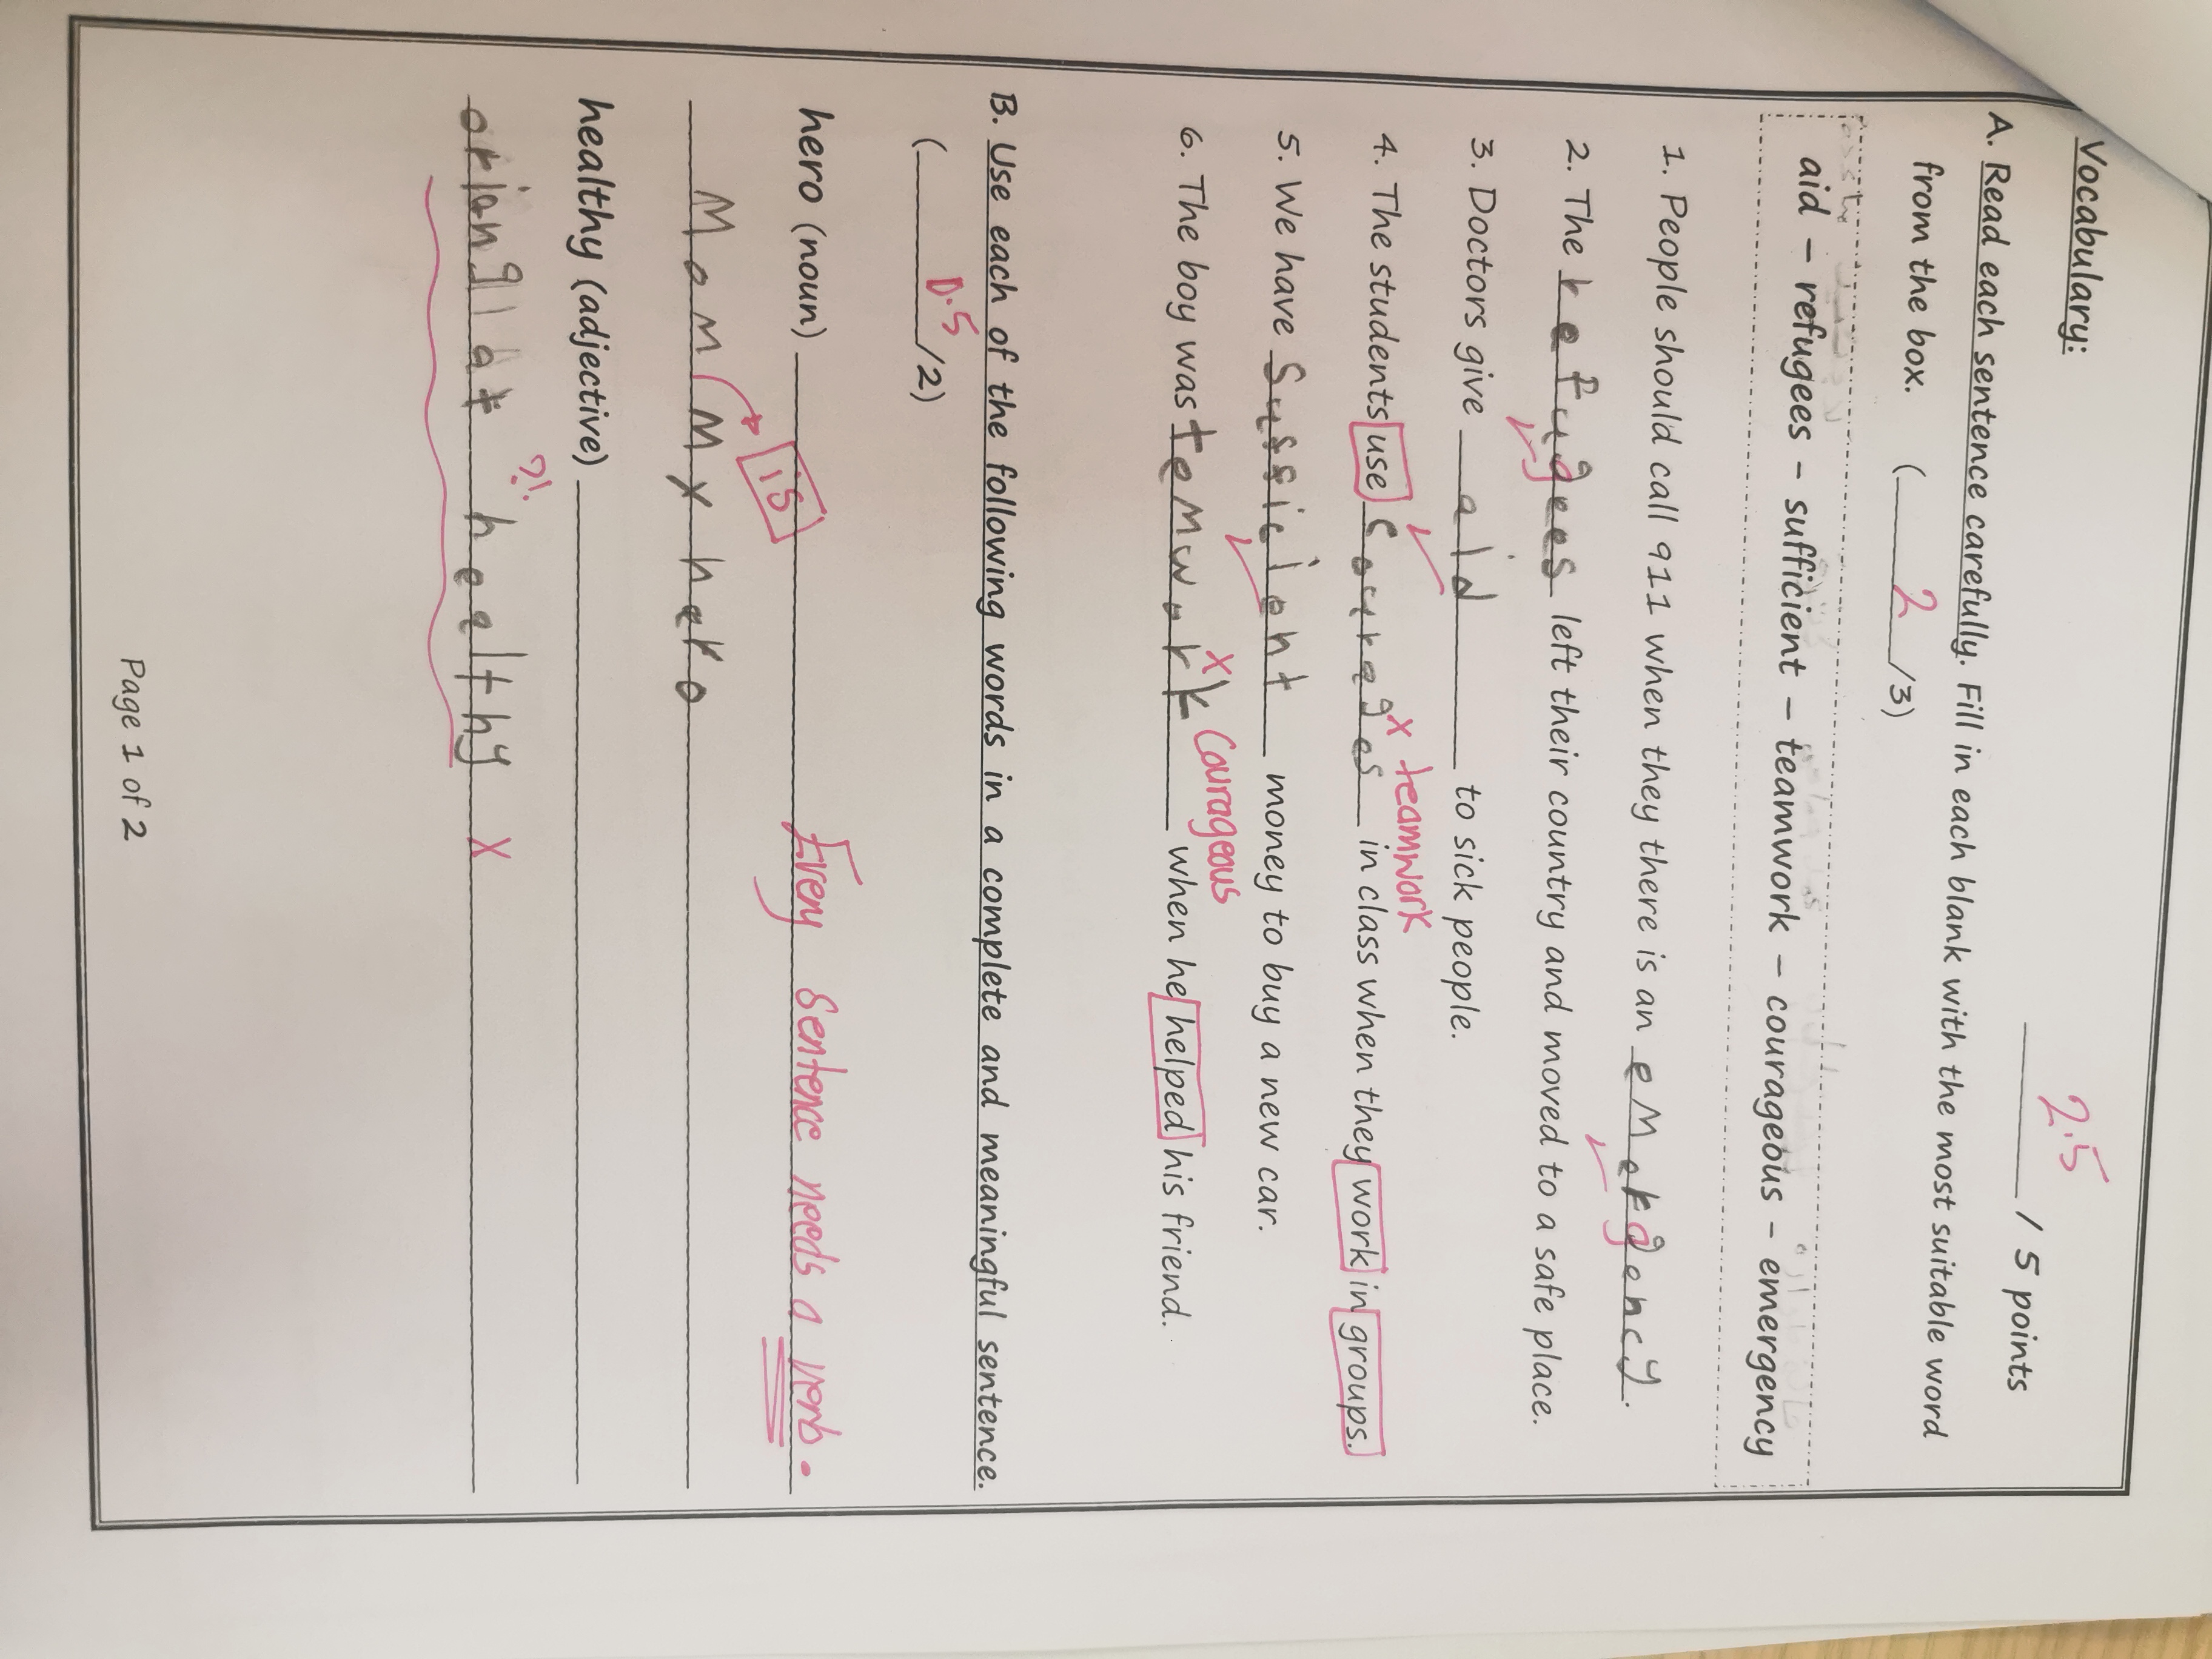 2.5
Vocabulary: ______ / 5 points
A. Read each sentence carefully. Fill in each blank with the most suitable word
from the box. (___2___/3)
aid – refugees – sufficient – teamwork – courageous – emergency
1. People should call 911 when they there is an eMergency.
2. The refugees left their country and moved to a safe place.
3. Doctors give aid to sick people.
4. The students use Courages in class when they work in groups. x teamwork
5. We have Sussicient money to buy a new car.
6. The boy was teMwork when he helped his friend. x Courageous
B. Use each of the following words in a complete and meaningful sentence.
(___0.5___/2)
hero (noun) Every Sentence needs a verb.
is
MoM My hero
healthy (adjective)
?!
at healthy x
Page 1 of 2